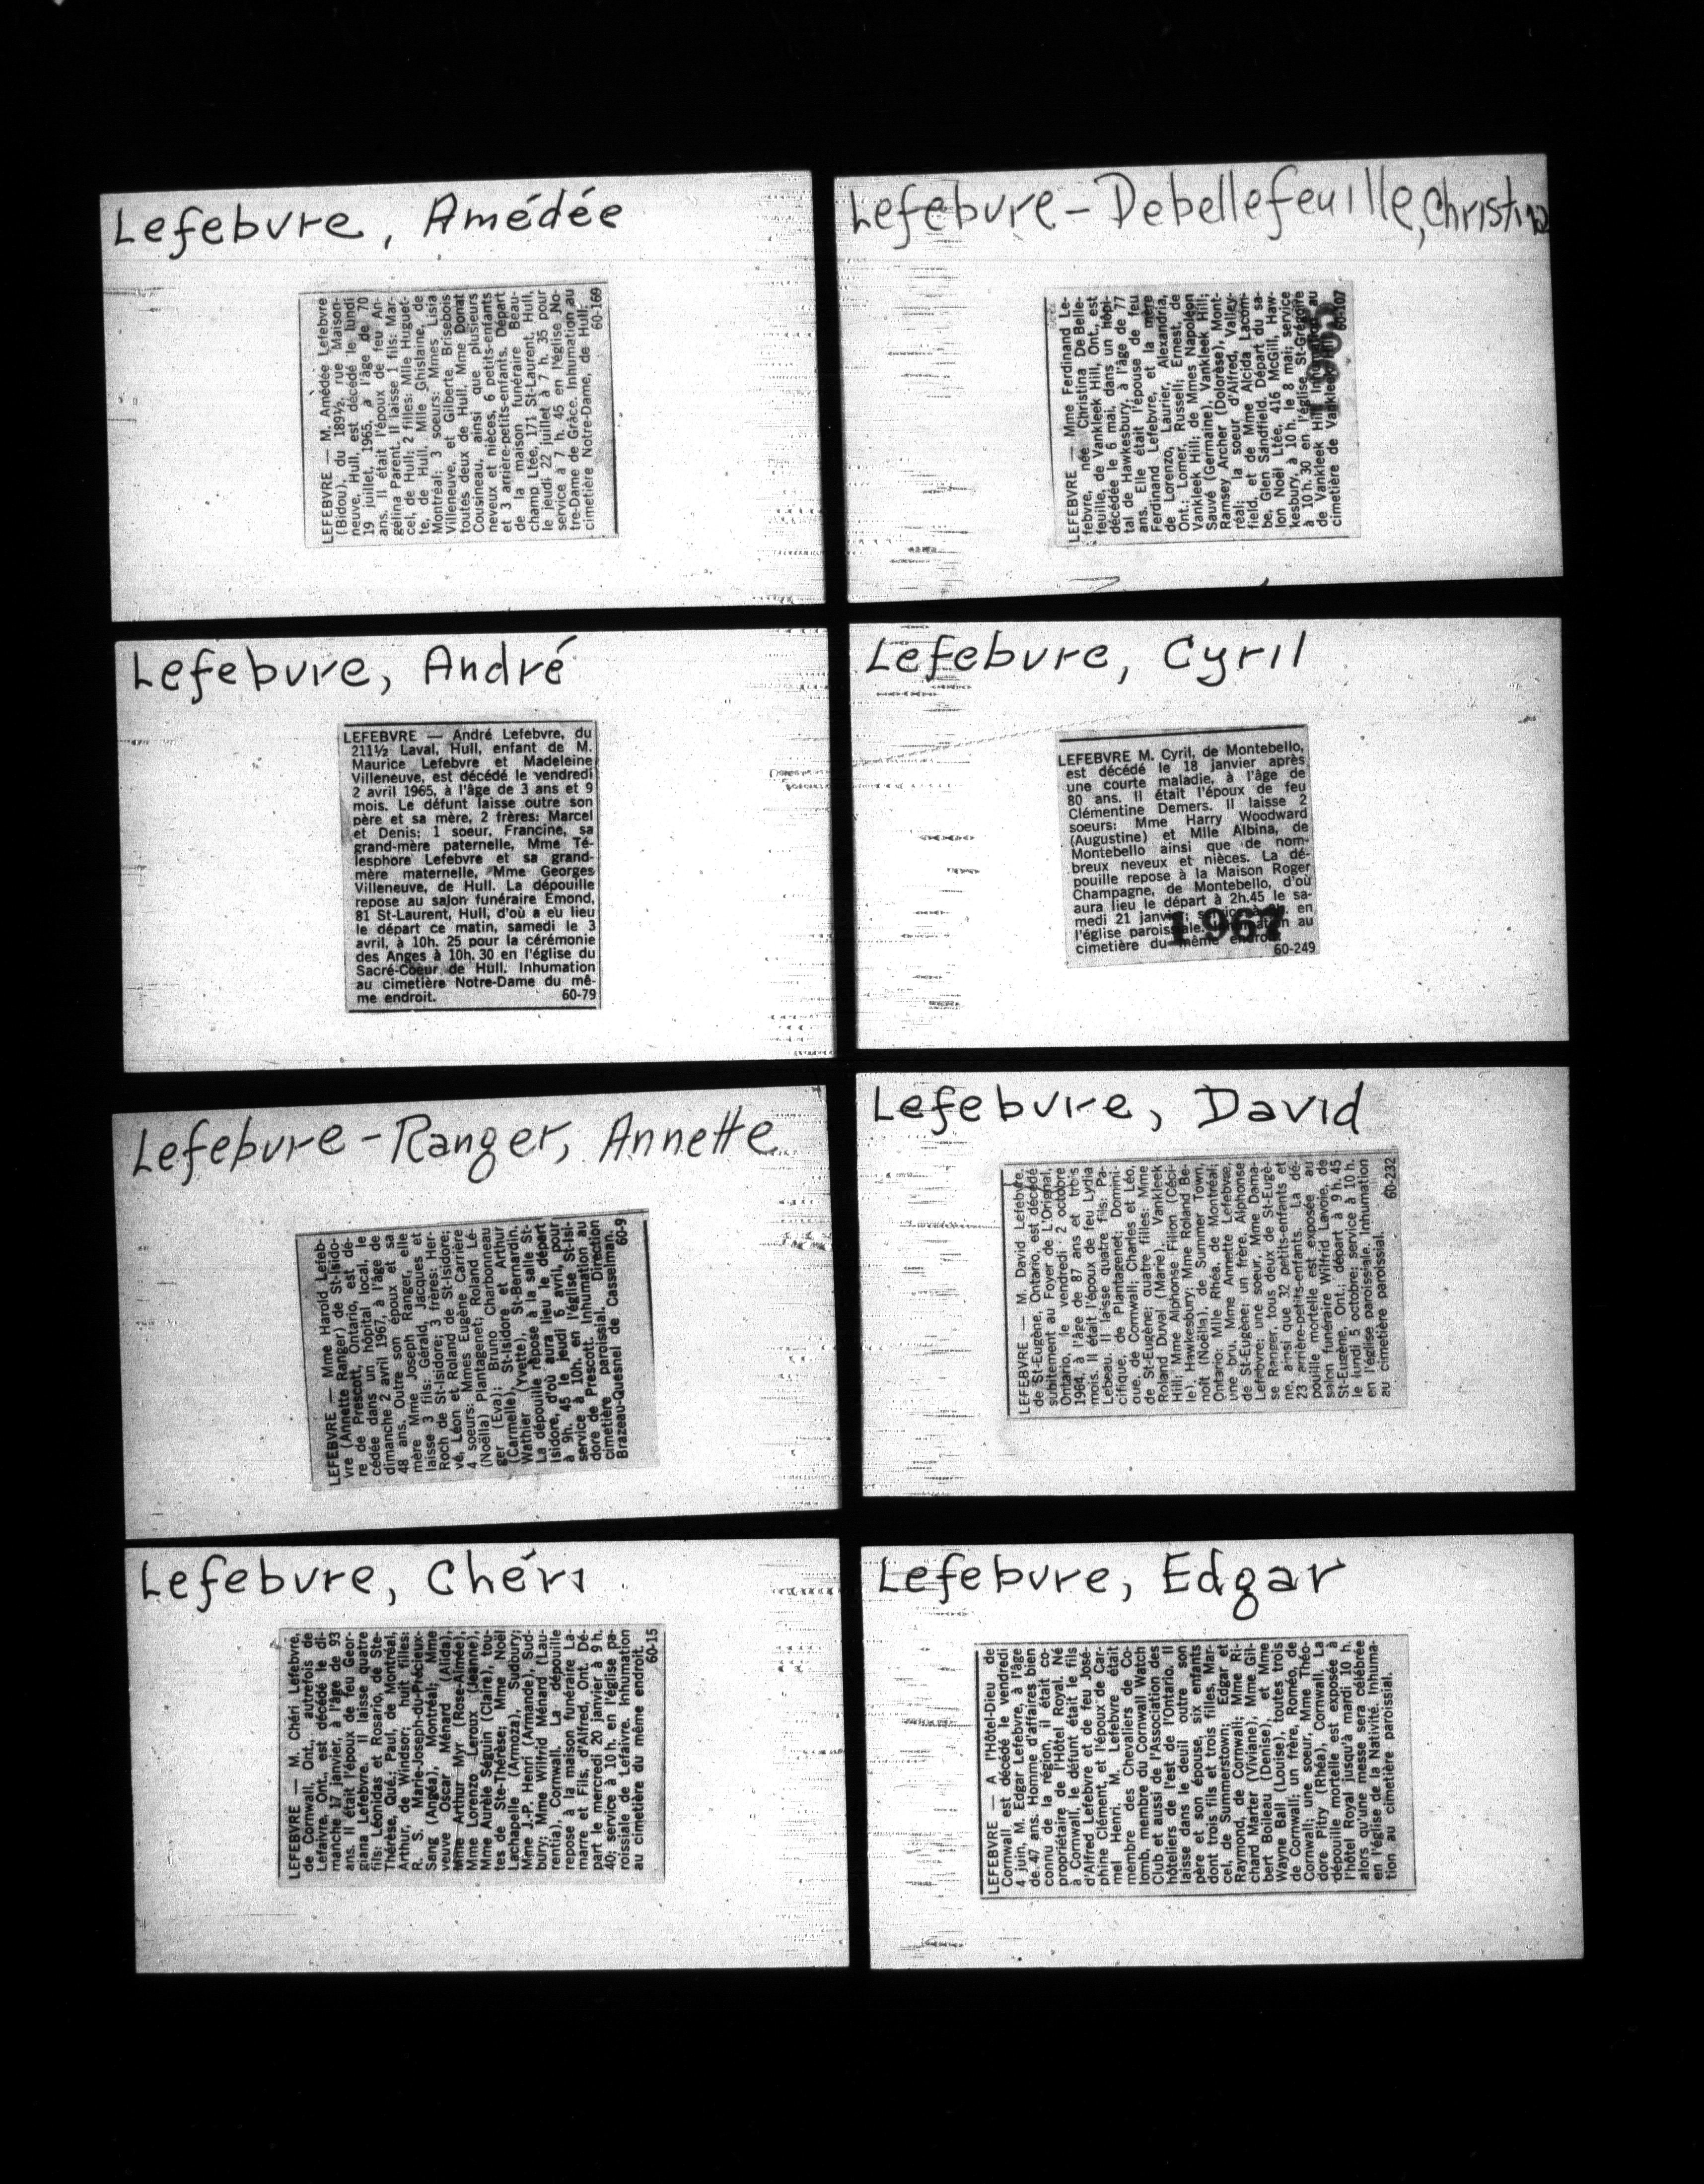 Lefebvre, Amédée
LEFEBVRE — M. Amédée Lefebvre
(Bidou), du 189½, rue Maison-
neuve, Hull, est décédé le lundi
19 juillet, 1965, à l'âge de 70
ans. Il était l'époux de feu An-
gélina Parent. Il laisse 1 fils: Mar-
cel, de Hull; 2 filles: Mlle Huguet-
te, de Hull, Mlle Ghislaine, de
Montréal; 3 soeurs: Mmes Lisia
Villeneuve, et Gilberte Brisebois
toutes deux de Hull, Mme Donat
Cousineau, ainsi que plusieurs
neveux et nièces, 6 petits-enfants
et 3 arrière-petits-enfants. Départ
de la maison funéraire Beau-
champ Ltée, 171 St-Laurent, Hull,
le jeudi 22 juillet à 7 h. 35 pour
service à 7 h. 45 en l'église No-
tre-Dame de Grâce. Inhumation au
cimetière Notre-Dame, de Hull.
60-169
Lefebvre, André
LEFEBVRE — André Lefebvre, du
211½ Laval, Hull, enfant de M.
Maurice Lefebvre et Madeleine
Villeneuve, est décédé le vendredi
2 avril 1965, à l'âge de 3 ans et 9
mois. Le défunt laisse outre son
père et sa mère, 2 frères: Marcel
et Denis; 1 soeur, Francine, sa
grand-mère paternelle, Mme Té-
lesphore Lefebvre et sa grand-
mère maternelle, Mme Georges
Villeneuve, de Hull. La dépouille
repose au salon funéraire Emond,
81 St-Laurent, Hull, d'où a eu lieu
le départ ce matin, samedi le 3
avril, à 10h. 25 pour la cérémonie
des Anges à 10h. 30 en l'église du
Sacré-Coeur de Hull. Inhumation
au cimetière Notre-Dame du mê-
me endroit. 60-79
Lefebvre-Ranger, Annette
LEFEBVRE — Mme Harold Lefeb-
vre (Annette Ranger) de St-Isido-
re de Prescott, Ontario, est dé-
cédée dans un hôpital local, le
dimanche 2 avril 1967, à l'âge de
48 ans. Outre son époux et sa
mère Mme Joseph Ranger, elle
laisse 3 fils: Gérald, Jacques et
Roch de St-Isidore; 3 frères: Her-
vé, Léon et Roland de St-Isidore;
4 soeurs: Mmes Eugène Carrière
(Noëlla) Plantagenet; Roland Lé-
ger (Eva); Bruno Charbonneau
(Carmelle), St-Isidore et Arthur
Wathier (Yvette), St-Bernardin.
La dépouille repose à la salle St-
Isidore, d'où aura lieu le départ
à 9h. 45 le jeudi 6 avril, pour
service à 10h. en l'église St-Isi-
dore de Prescott. Inhumation au
cimetière paroissial. Direction
Brazeau-Quesnel de Casselman.
60-9
Lefebvre, Chéri
LEFEBVRE — M. Chéri Lefebvre,
de Cornwall, Ont., autrefois de
Lefaivre, Ont., est décédé le di-
manche 17 janvier, à l'âge de 93
ans. Il était l'époux de feu Geor-
giana Lefebvre. Il laisse quatre
fils: Léonidas et Rosario, de Ste-
Thérèse, Qué., Paul, de Montréal,
Arthur, de Windsor; huit filles:
R. S. Marie-Joseph-du-Précieux-
Sang (Angéa), Montréal; Mme
veuve Oscar Ménard (Alida),
Mme Arthur Myr (Rose-Aimée),
Mme Lorenzo Leroux (Jeanne),
Mme Aurèle Séguin (Claire), tou-
tes de Ste-Thérèse; Mme Noël
Lachapelle (Armoza), Sudbury;
Mme J.-P. Henri (Armande), Sud-
bury; Mme Wilfrid Ménard (Lau-
rentia), Cornwall. La dépouille
repose à la maison funéraire La-
marre et Fils, d'Alfred, Ont. Dé-
part le mercredi 20 janvier à 9 h.
40; service à 10 h. en l'église pa-
roissiale de Lefaivre. Inhumation
au cimetière du même endroit.
60-15
Lefebvre-Debellefeuille, Christina
LEFEBVRE — Mme Ferdinand Le-
febvre, née Christina DeBelle-
feuille, de Vankleek Hill, Ont., est
décédée le 6 mai, dans un hôpi-
tal de Hawkesbury, à l'âge de 77
ans. Elle était l'épouse de feu
Ferdinand Lefebvre, et la mère
de Lorenzo, Laurier, Alexandria,
Ont.; Lomer, Russell; Ernest, de
Vankleek Hill; de Mmes Napoléon
Sauvé (Germaine), Vankleek Hill;
Ramsey Archer (Dolorèse), Mont-
réal; la soeur d'Alfred, Valley-
field, et de Mme Alcida Lacom-
be, Glen Sandfield. Départ du sa-
lon Noël Ltée, 416 McGill, Haw-
kesbury, à 10 h. le 8 mai; service
à 10 h. 30 en l'église St-Grégoire
de Vankleek Hill. au
cimetière de Vankleek
60-107
Lefebvre, Cyril
LEFEBVRE M. Cyril, de Montebello,
est décédé le 18 janvier après
une courte maladie, à l'âge de
80 ans. Il était l'époux de feu
Clémentine Demers. Il laisse 2
soeurs: Mme Harry Woodward
(Augustine) et Mlle Albina, de
Montebello ainsi que de nom-
breux neveux et nièces. La dé-
pouille repose à la Maison Roger
Champagne, de Montebello, d'où
aura lieu le départ à 2h.45 le sa-
medi 21 janvier; en
l'église paroissiale. au
cimetière du même endroit.
1967
60-249
Lefebvre, David
LEFEBVRE — M. David Lefebvre,
de St-Eugène, Ontario, est décédé
subitement au Foyer de L'Orignal,
Ontario, le vendredi 2 octobre
1964, à l'âge de 87 ans et trois
mois. Il était l'époux de feu Lydia
Lebeau. Il laisse quatre fils: Pa-
cifique, de Plantagenet; Domini-
que, de Cornwall; Charles et Léo,
de St-Eugène; quatre filles: Mme
Roland Duval (Marie), Vankleek
Hill; Mme Alphonse Filion (Céci-
le), Hawkesbury; Mme Roland Be-
noît (Noëlla), de Summer Town,
Ontario; Mlle Rhéa, de Montréal;
une bru, Mme Annette Lefebvre,
de St-Eugène; un frère, Alphonse
Lefebvre; une soeur, Mme Dama-
se Ranger, tous deux de St-Eugè-
ne, ainsi que 32 petits-enfants et
23 arrière-petits-enfants. La dé-
pouille mortelle est exposée au
salon funéraire Wilfrid Lavoie, de
St-Eugène, Ont.; départ à 9 h. 45
le lundi 5 octobre; service à 10 h.
en l'église paroissiale. Inhumation
au cimetière paroissial.
60-232
Lefebvre, Edgar
LEFEBVRE — A l'Hôtel-Dieu de
Cornwall est décédé le vendredi
4 juin, M. Edgar Lefebvre, à l'âge
de 47 ans. Homme d'affaires bien
connu de la région, il était co-
propriétaire de l'Hôtel Royal. Né
à Cornwall, le défunt était le fils
d'Alfred Lefebvre et de feu José-
phine Clément, et l'époux de Car-
mel Henri. M. Lefebvre était
membre des Chevaliers de Co-
lomb, membre du Cornwall Watch
Club et aussi de l'Association des
hôteliers de l'est de l'Ontario. Il
laisse dans le deuil outre son
père et son épouse, six enfants
dont trois fils et trois filles, Mar-
cel, de Summerstown; Edgar et
Raymond, de Cornwall; Mme Ri-
chard Marter (Viviane), Mme Gil-
bert Boileau (Denise), et Mme
Wayne Ball (Louise), toutes trois
de Cornwall; un frère, Roméo, de
Cornwall; une soeur, Mme Théo-
dore Pitry (Rhéa), Cornwall. La
dépouille mortelle est exposée à
l'hôtel Royal jusqu'à mardi 10 h.
alors qu'une messe sera célébrée
en l'église de la Nativité. Inhuma-
tion au cimetière paroissial.